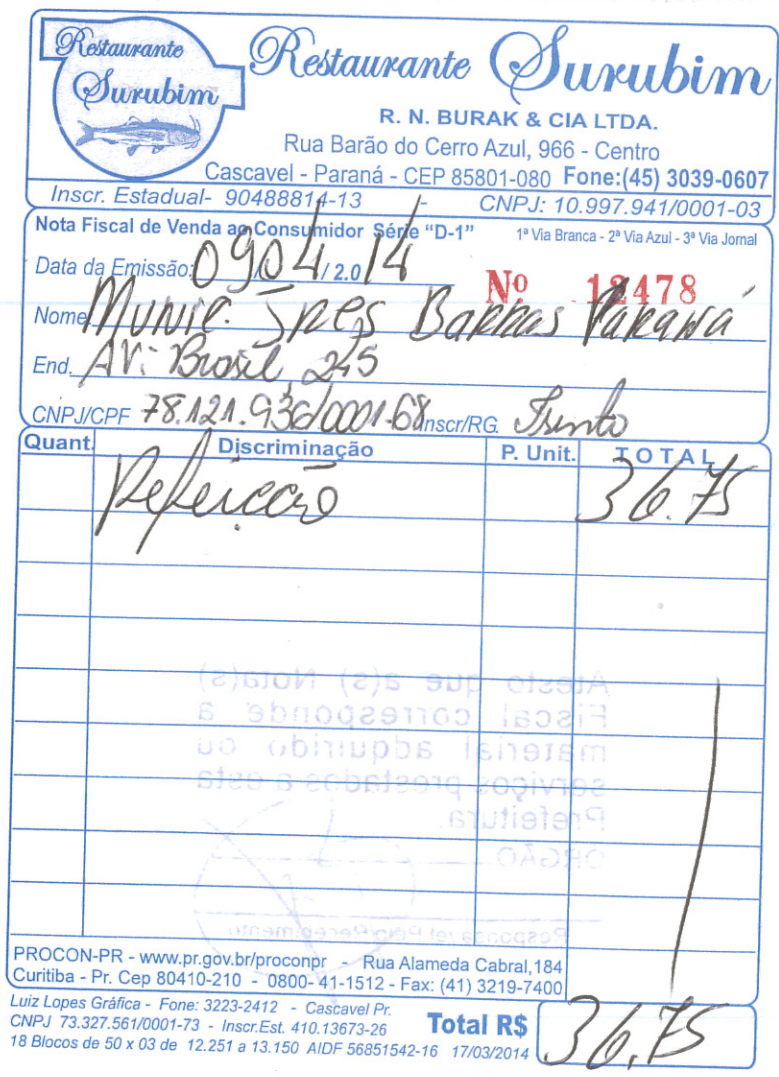 Restaurante
Surubim
Restaurante Surubim
R. N. BURAK & CIA LTDA.
Rua Barão do Cerro Azul, 966 - Centro
Cascavel - Paraná - CEP 85801-080 Fone:(45) 3039-0607
Inscr. Estadual- 90488814-13 - CNPJ: 10.997.941/0001-03
Nota Fiscal de Venda ao Consumidor Série "D-1" 1ª Via Branca - 2ª Via Azul - 3ª Via Jornal
Data da Emissão: 09 04 / 2.0 14
Nº 12478
Nome Munic. Tres Barras Paraná
End. Av: Brasil, 245
CNPJ/CPF 78.121.936/0001-68 Inscr/RG. Isento
Quant. Discriminação P. Unit. TOTAL
Refeicão 36.75
Atesto que a(s) Nota(s)
Fiscal corresponde a
material adquirido ou
serviços prestados a esta
Prefeitura.
ORGÃO
Responsável Pelo Recebimento
PROCON-PR - www.pr.gov.br/proconpr - Rua Alameda Cabral,184
Curitiba - Pr. Cep 80410-210 - 0800- 41-1512 - Fax: (41) 3219-7400
Luiz Lopes Gráfica - Fone: 3223-2412 - Cascavel Pr.
CNPJ 73.327.561/0001-73 - Inscr.Est. 410.13673-26
18 Blocos de 50 x 03 de 12.251 a 13.150 AIDF 56851542-16 17/03/2014
Total R$ 36,75